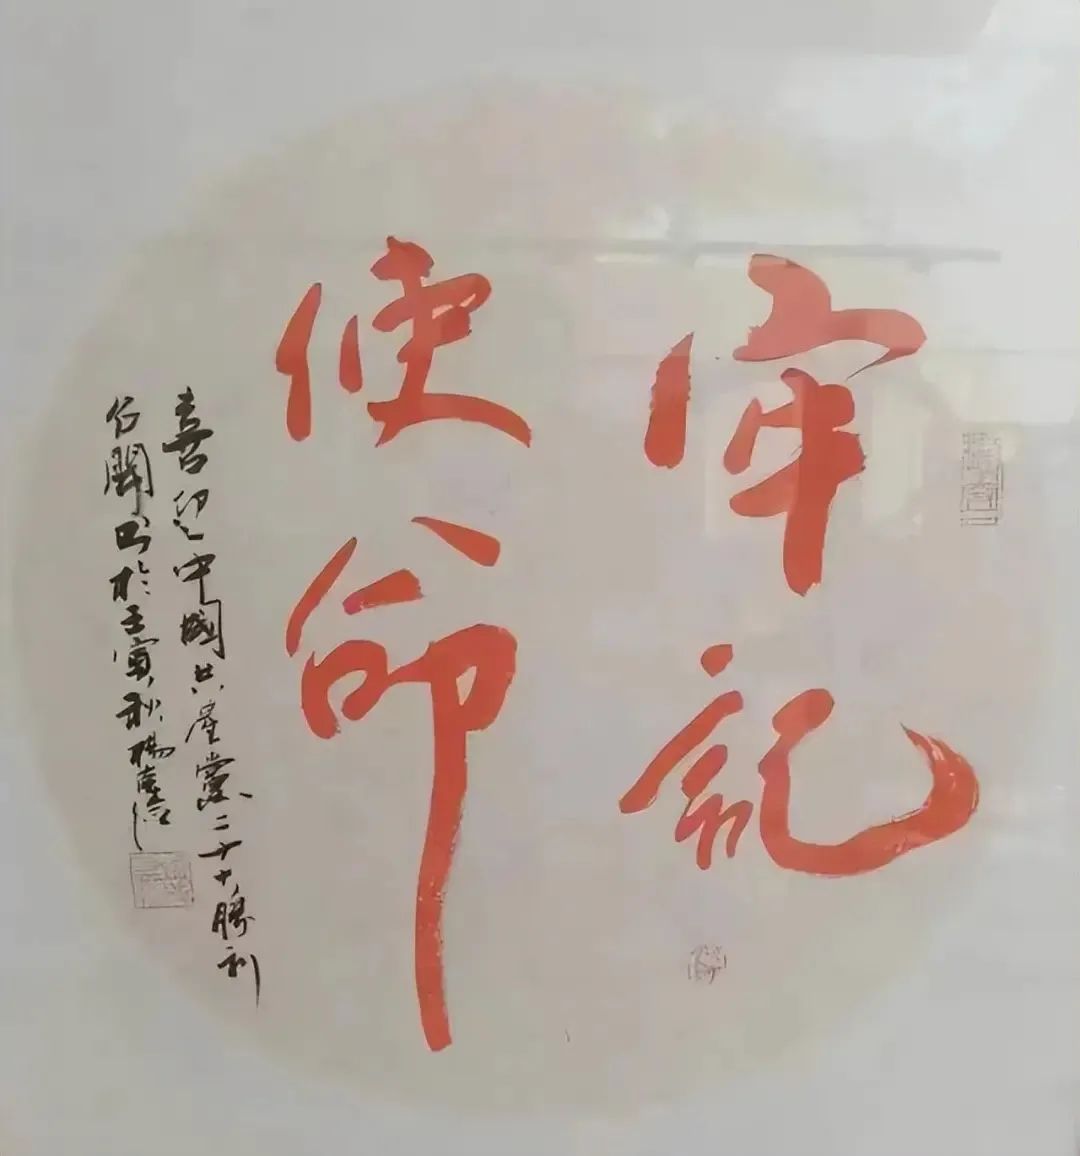 牢記
使命
喜迎中國共產黨二十大勝利
召開书於壬寅秋楊